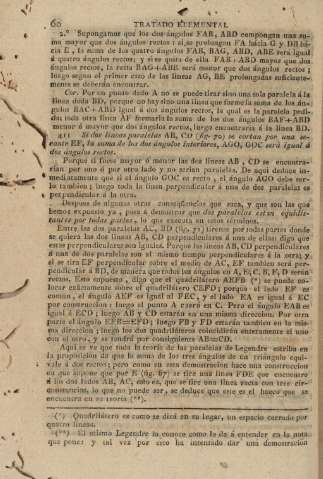 60 TRATADO ELEMENTAL
2.° Supongamos que los dos ángulos FAB, ABD compongan una su-
ma mayor que dos ángulos rectos: si se prolongan FA hácia G y DB há-
cia E, la suma de los cuatro ángulos FAB, BAG, ABD, ABE será igual
á cuatro ángulos rectos; y si se quita de ella FAB+ABD mayor que dos
ángulos rectos, la resta BAG+ABE será menor que dos ángulos rectos;
luego segun el primer caso de las líneas AG, BE prolongadas suficiente-
mente se deberán encontrar.
Cor. Por un punto dado A no se puede tirar sino una sola paralela á la
línea dada BD, porque no hay sino una línea que forme la suma de los án-
gulos BAC+ABD igual á dos ángulos rectos, la cual es la paralela pedi-
da; toda otra línea AF formaría la suma de los dos ángulos BAF+ABD
mayor ó menor que dos ángulos rectos, luego encontraría á la línea BD.
Si dos líneas paralelas AB, CD se cortan por una se-
cante EF, la suma de los dos ángulos interiores, AGO, GOC será igual á
dos ángulos rectos.
Porque si fuese mayor ó menor las dos líneas AB, CD se encontra-
rían por uno ó por otro lado y no serían paralelas. De aquí deduce in-
mediatamente que si el ángulo GOC es recto, el ángulo AGO debe ser-
lo tambien; luego toda la línea perpendicular á una de dos paralelas es
perpendicular á la otra.
Despues de algunas otras consecuencias que saca, y que son las que
hemos expuesto ya, pasa á demostrar que dos paralelas están equidis-
tantes por todas partes, lo que executa en estos términos.
Entre las dos paralelas AC, BD tírense por todas partes donde
se quiera las dos líneas AB, CD perpendiculares á una de ellas; digo que
estas perpendiculares son iguales. Porque las líneas AB, CD perpendiculares
á una de dos paralelas son al mismo tiempo perpendiculares á la otra; y
si se tira EF perpendicular sobre el medio de AC, EF tambien será per-
pendicular á BD, de manera que todos los ángulos en A, E, C, B, F, D serán
rectos. Esto supuesto, digo que el quadrilátero AEFB (*) se puede co-
locar exâctamente sobre el quadrilátero CEFD; porque el lado EF es
comun, el ángulo AEF es igual al FEC, y el lado EA es igual á EC
por construccion: luego el punto A caerá en C. Pero el ángulo EAB es
igual á ECD; luego AB y CD estarán en una misma direccion. Por otra
parte el ángulo EFB=EFD; luego FB y FD estarán tambien en la mis-
ma direccion; luego los dos quadriláteros coincidirán enteramente el uno
con el otro, y se tendrá por consiguiente AB=CD.
Aquí se ve que toda la teoría de las paralelas de Legendre estriba en
la proposicion de que la suma de los tres ángulos de un triángulo equi-
vale á dos rectos; pero como en esta demostracion hace una construccion
en que supone que por B se tire una línea FDE que encuentre
á los dos lados AB, AC, esto es, que se tire una línea recta con tres cir-
cunstancias, lo que no puede ser, se deduce que este es el hueco que se
encuentra en su teoría (**).
(*) Quadrilátero es como se dirá en su lugar, un espacio cerrado por
quatro líneas.
(**) El mismo Legendre la conoce como lo da á entender en la nota
que pone; y tal vez por esto ha intentado dar una demostracion